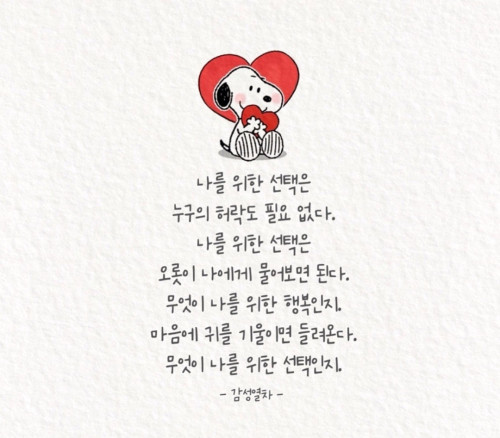 나를 위한 선택은
누구의 허락도 필요 없다.
나를 위한 선택은
오롯이 나에게 물어보면 된다.
무엇이 나를 위한 행복인지.
마음에 귀를 기울이면 들려온다.
무엇이 나를 위한 선택인지.
- 감성열차 -